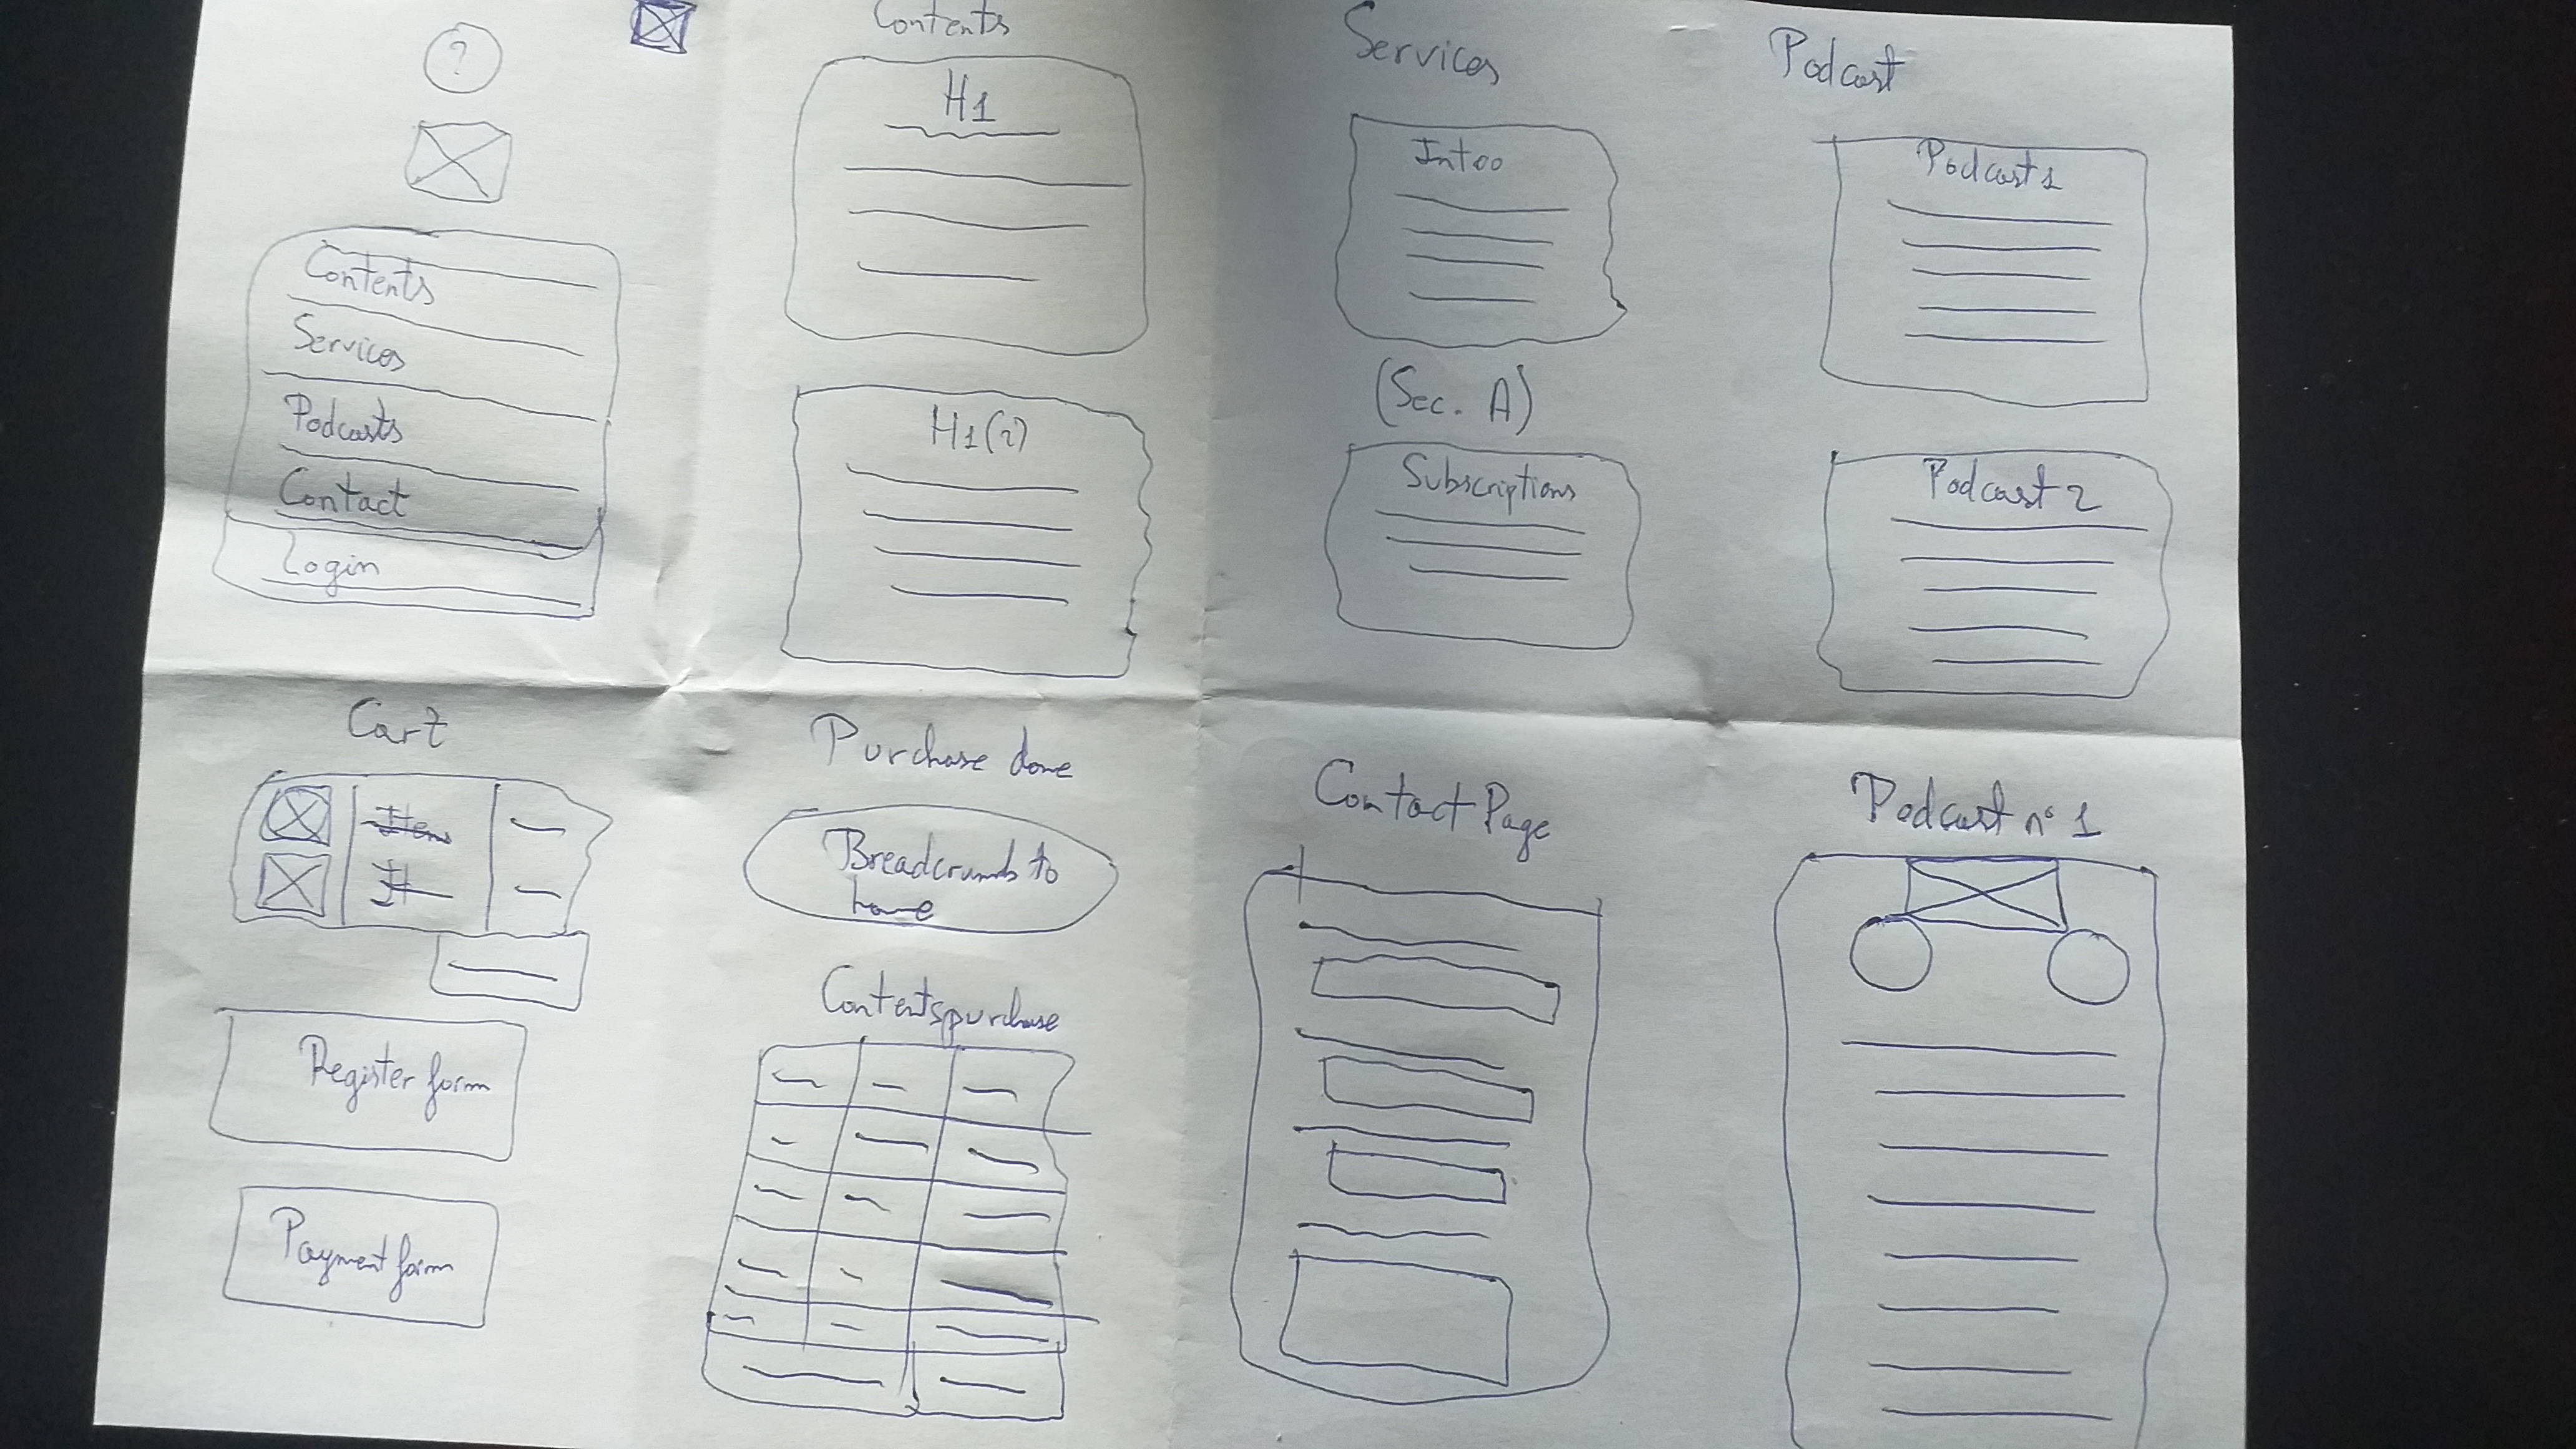 ?
Contents
Services
Podcasts
Contact
Login
Contents
H1
H1(2)
Services
Intro
(Sec. A)
Subscriptions
Podcast
Podcast 1
Podcast 2
Cart
Item
It
Register form
Payment form
Purchase done
Breadcrumbs to
home
Contents purchase
Contact Page
Podcast nº 1